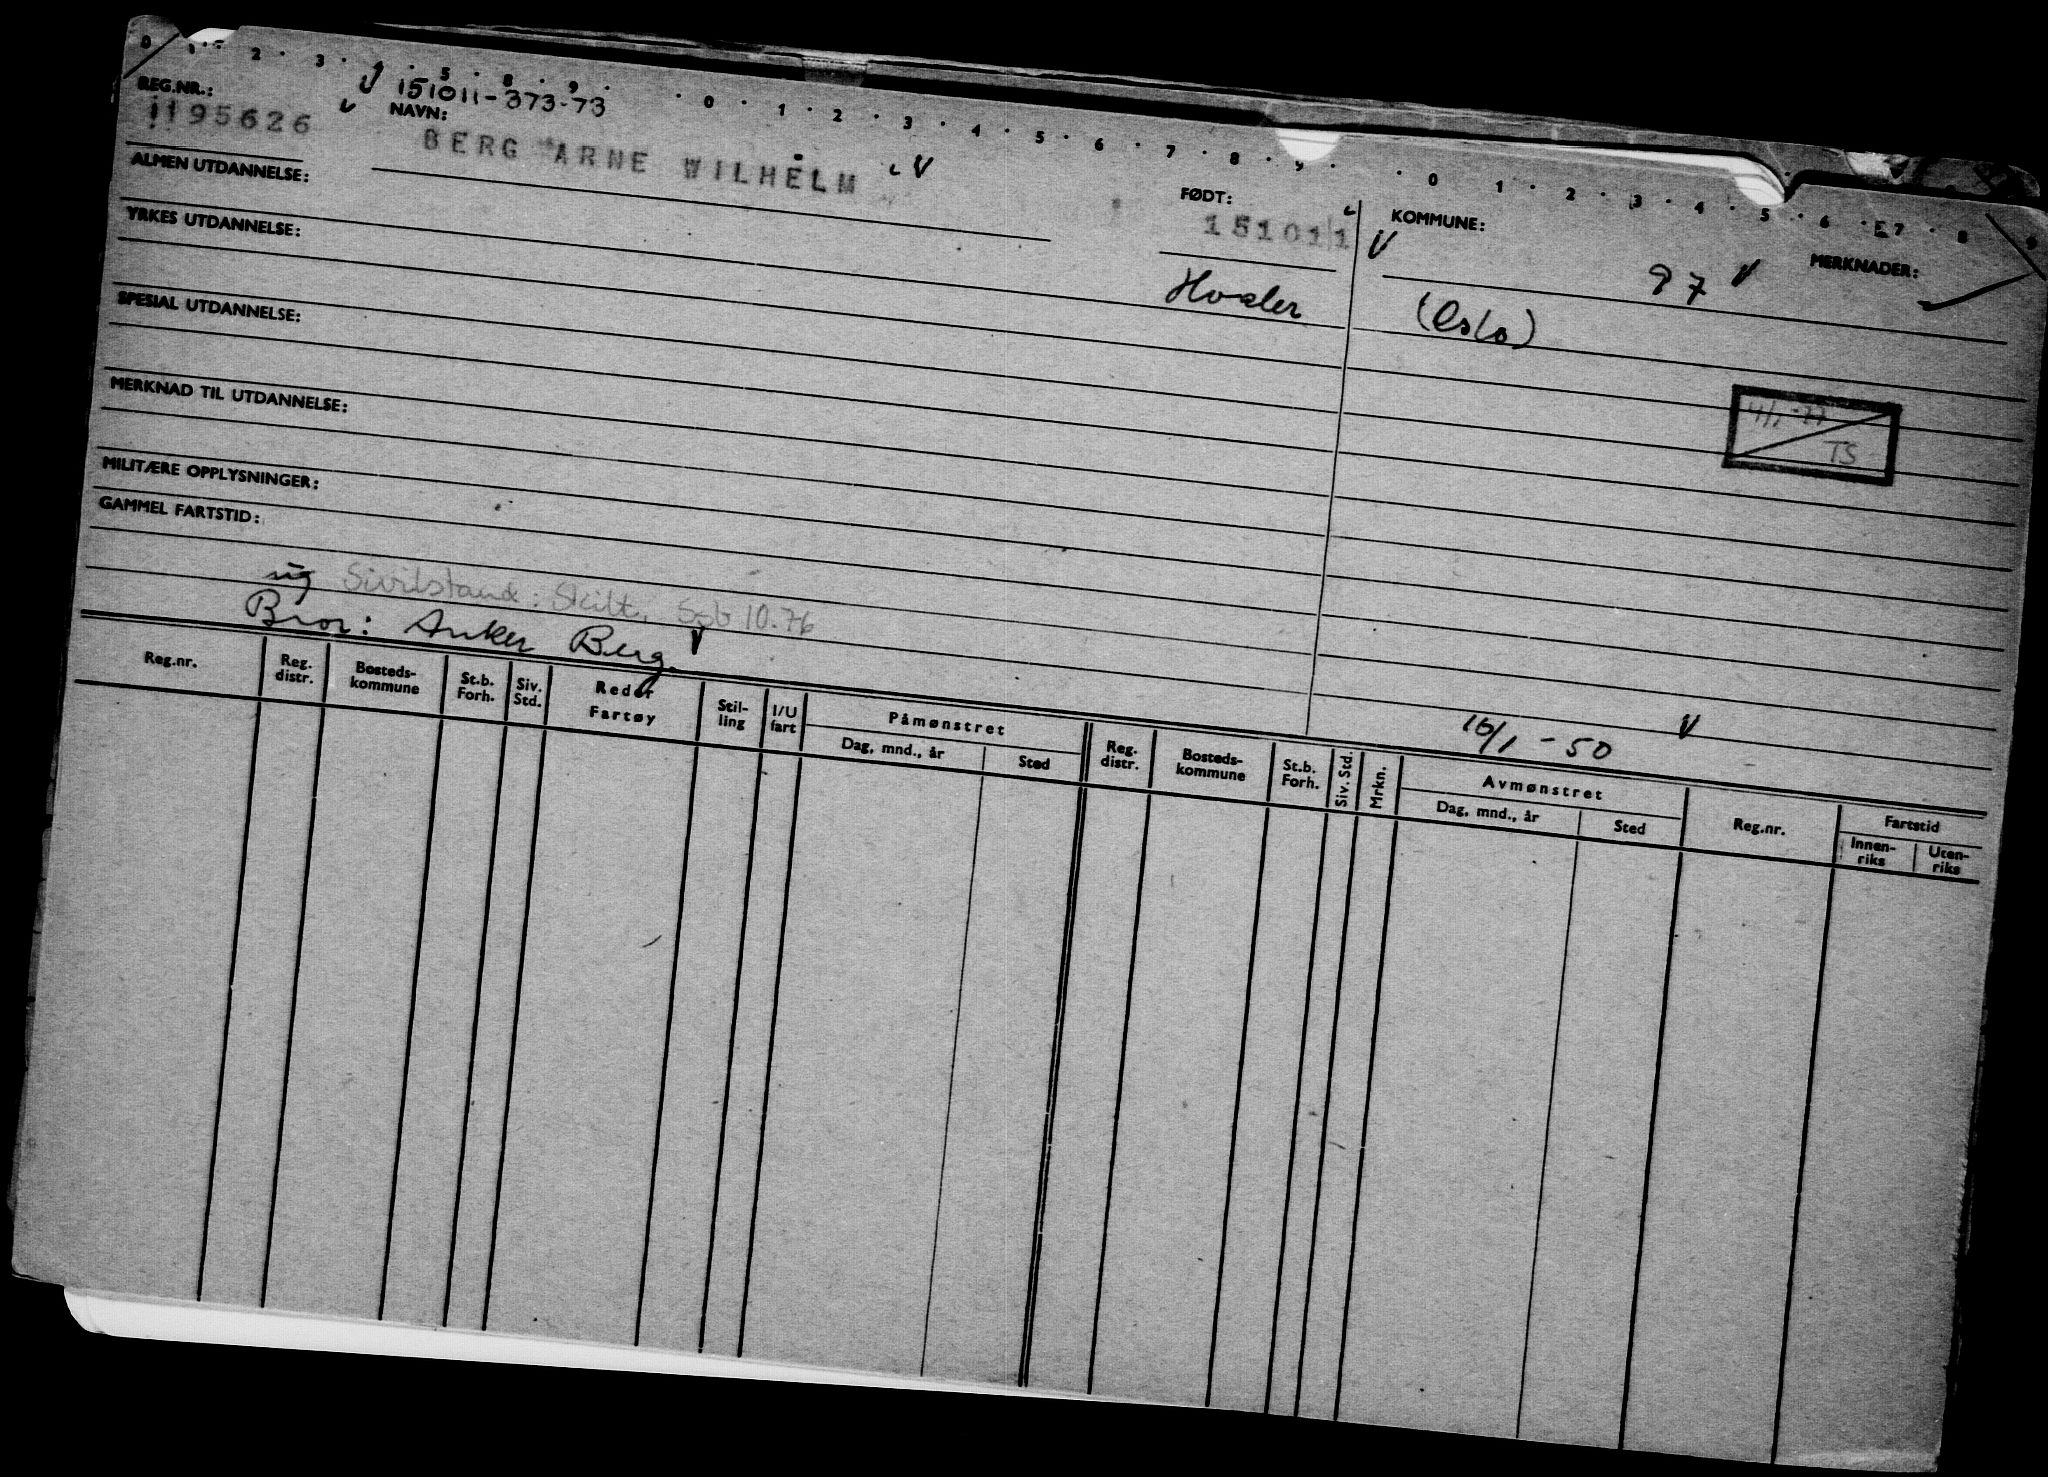 0 1 2 3 4 5 8 9 0 1 2 3 4 5 6 7 8 9 0 1 2 3 4 5 6 E7 8 9
REG.NR.: 151011-373-73
1195626 NAVN:
BERG ARNE WILHELM
FØDT: KOMMUNE:
151011 97 MERKNADER:
ALMEN UTDANNELSE:
YRKES UTDANNELSE:
Hvaler (Oslo)
SPESIAL UTDANNELSE:
MERKNAD TIL UTDANNELSE:
4/1-77
TS
MILITÆRE OPPLYSNINGER:
GAMMEL FARTSTID:
ug Sivilstand: Skilt. Ssb 10.76
Bror: Anker Berg.
16/1-50
Reg.nr. Reg. distr. Bosteds-kommune St.b. Forh. Siv. Std. Reder Fartøy Stil-ling I/U fart Påmønstret Dag, mnd., år Sted Reg. distr. Bosteds-kommune St.b. Forh. Siv. Std. Mrkn. Avmønstret Dag, mnd., år Sted Reg.nr. Fartstid Innen-riks Uten-riks